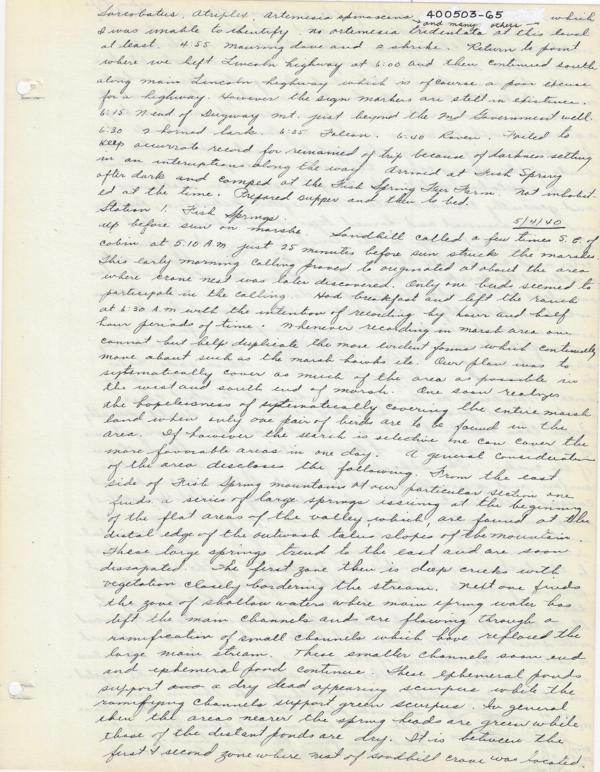 400503-65
Sarcobatus, Atriplex, Artemesia spinescens and many others which
I was unable to identify. no artemesia tridentata at this level
at least. 4:55 mourning dove and a shrike. Return to point
where we left Lincoln highway at 6:00 and then continued south
along main Lincoln highway which is of course a poor excuse
for a highway. However the sign markers are still in existence.
6:15 N end of Dugway mt. just beyond the 2nd Government well.
6:30 2 horned lark. 6:35 Falcon. 6:40 Raven. Failed to
keep accurrate record for remained of trip because of darkness setting
in an interuptions along the way. Arrived at Fish Spring
after dark and camped at the Fish Spring Fur Farm. Not inhabit-
ed at the time. Prepared supper and then to bed.
Station 1. Fish Springs. 5/4/40
Up before sun on marshe. Sandhill called a few times S.E. of
cabin at 5:10 A.M just 25 minutes before sun struck the marshes.
This early morning calling proved to originated at about the area
where crane nest was later discovered. Only one birds seemed to
participate in the calling. Had breakfast and left the ranch
at 6:30 A.M with the intention of recording by hour and half
hour periods of time. Whenever recording in marsh area one
cannot but help duplicate the more evident forms which continually
move about such as the marsh hawks etc. Our plan was to
systematically cover as much of the area as possible in
the west and south end of marsh. One soon realizes
the hopelessness of systematically covering the entire marsh
land when only one pair of birds are to be found in the
area. If however the search is selective one can cover the
more favorable areas in one day. A general consideration
of the area discloses the following. From the east
side of Fish Spring mountain at our particular section one
finds a series of large springs issuing at the beginning
of the flat areas of the valley which are found at the
distal edge of the outwash talus slopes of the mountain.
These large springs trend to the east and are soon
dissapated. The first zone then is deep creeks with
vegetation closely bordering the stream. Next one finds
the zone of shallow waters where main spring water has
left the main channels and are flowing through a
ramification of small channels which have replaced the
large main stream. These smaller channels soon end
and ephemeral pond continue. These ephemeral ponds
support a dry dead appearing scirpus while the
ramifying channels support green scirpus. In general
then the areas nearer the spring heads are green while
those of the distant ponds are dry. It is between the
first & second zone where nest of sandhill crane was located.